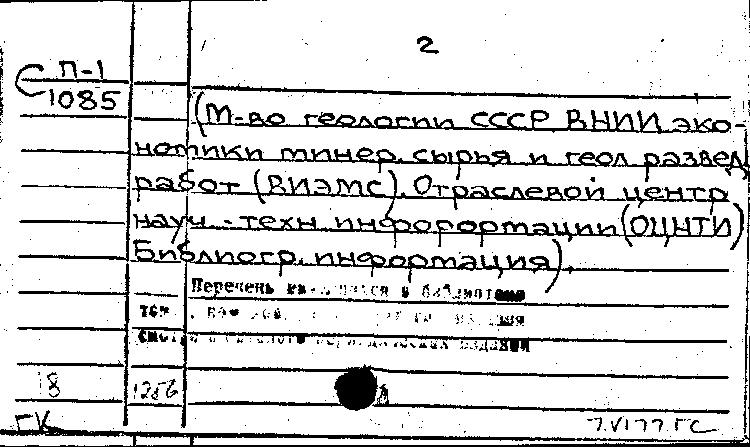 2
С П-1
1085
(М-во геологии СССР ВНИИ эко-
номики минер. сырья и геол развед.
работ (ВИЭМС). Отраслевой центр
науч.-техн. информации (ОЦНТИ)
Библиогр. информация).
Перечень в библиотеке
периодических изданий
18 1256
ГК 7.VI77 ГС